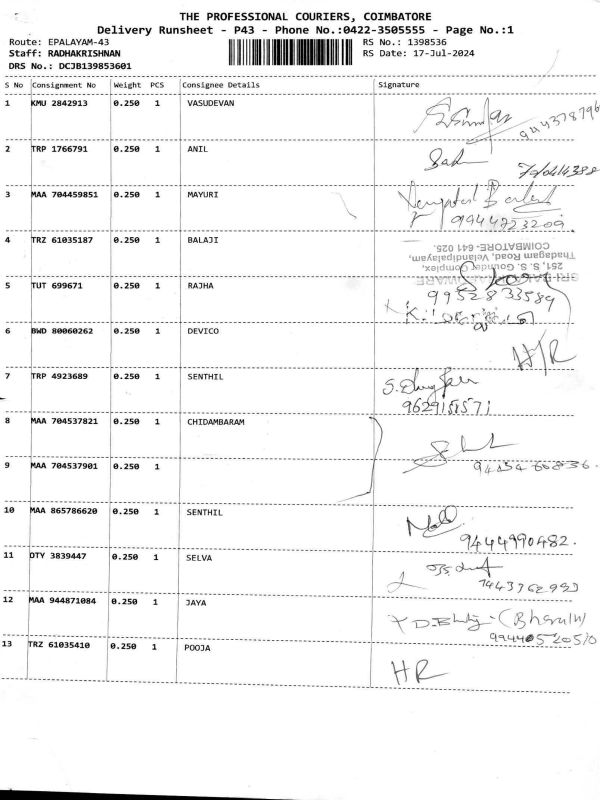 THE PROFESSIONAL COURIERS, COIMBATORE
Delivery Runsheet - P43 - Phone No.:0422-3505555 - Page No.:1
Route: EPALAYAM-43 RS No.: 1398536
Staff: RADHAKRISHNAN RS Date: 17-Jul-2024
DRS No.: DCJB139853601
S No Consignment No Weight PCS Consignee Details Signature
1 KMU 2842913 0.250 1 VASUDEVAN
944378796
2 TRP 1766791 0.250 1 ANIL
3 MAA 704459851 0.250 1 MAYURI
9944723209.
4 TRZ 61035187 0.250 1 BALAJI
251, S. S. Gounder Complex,
Thadagam Road, Velandipalayam,
COIMBATORE- 641 025.
5 TUT 699671 0.250 1 RAJHA
9952833589
6 BWD 80060262 0.250 1 DEVICO
H/R
7 TRP 4923689 0.250 1 SENTHIL
9629151571
8 MAA 704537821 0.250 1 CHIDAMBARAM
9 MAA 704537901 0.250 1
10 MAA 865786620 0.250 1 SENTHIL
9444990482.
11 DTY 3839447 0.250 1 SELVA
12 MAA 944871084 0.250 1 JAYA
13 TRZ 61035410 0.250 1 POOJA
HR